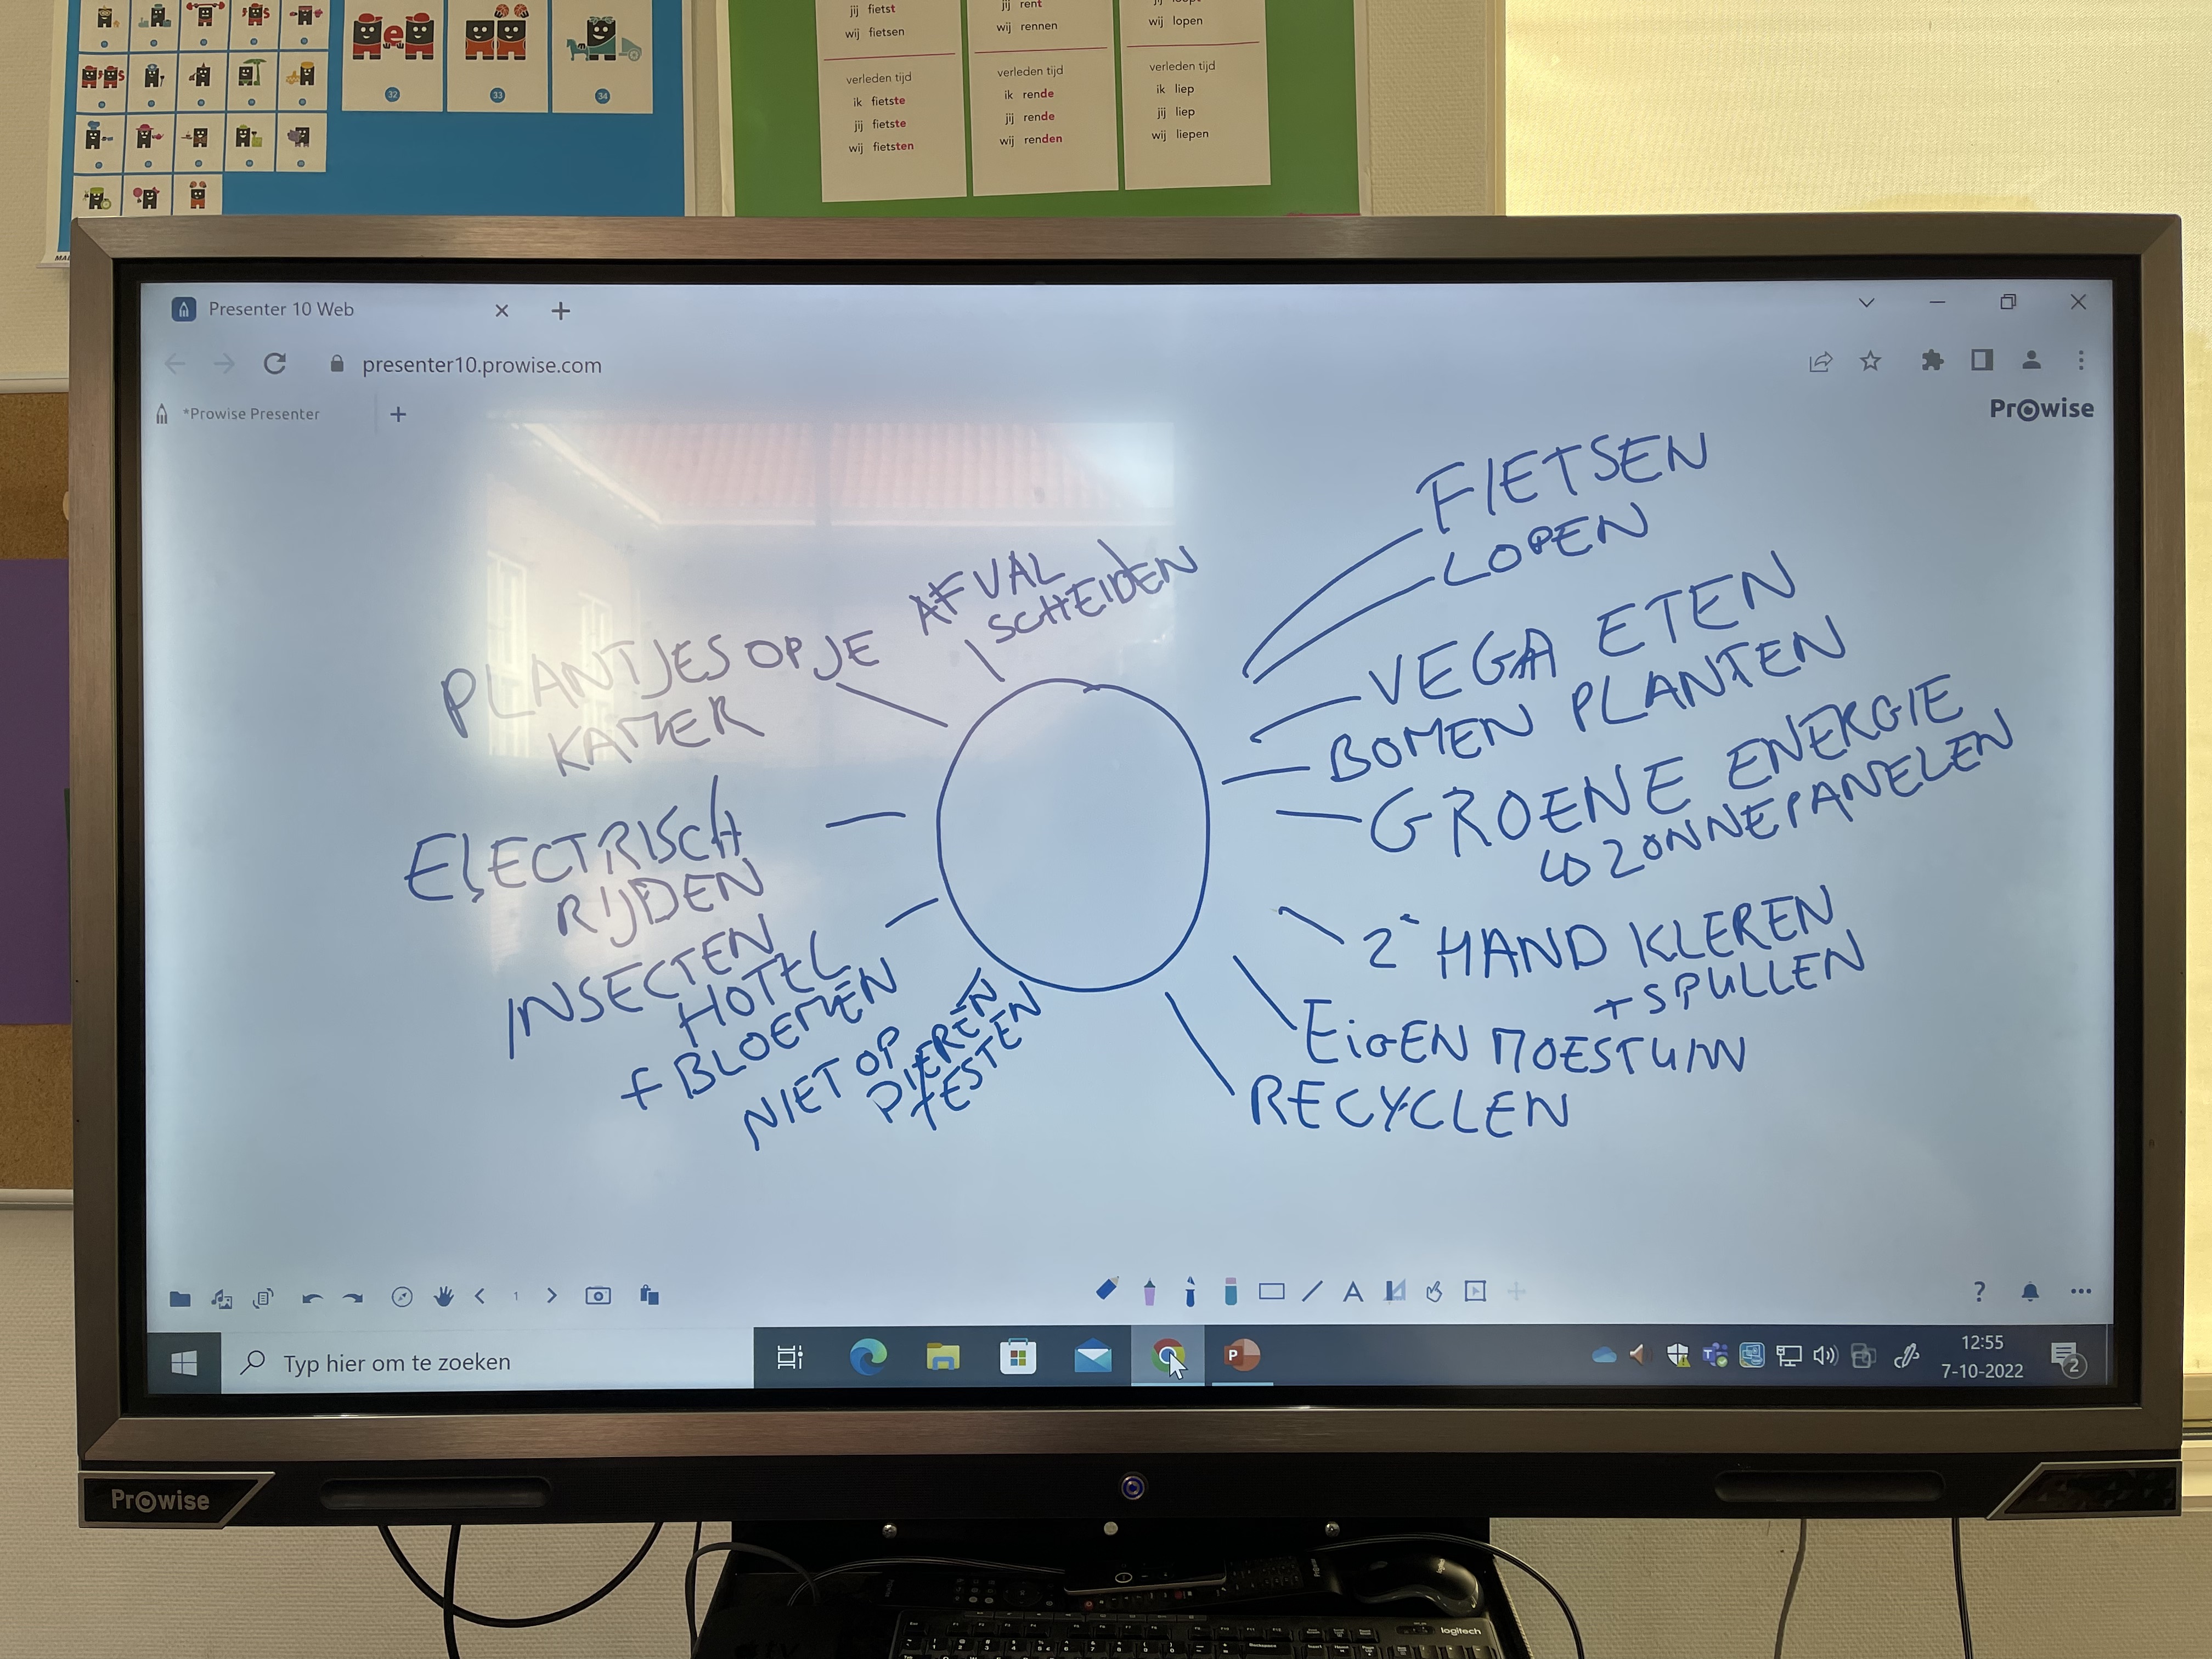 jij fietst
wij fietsen
verleden tijd
ik fietste
jij fietste
wij fietsten
jij rent
wij rennen
verleden tijd
ik rende
jij rende
wij renden
wij lopen
verleden tijd
ik liep
jij liep
wij liepen
32
33
34
Presenter 10 Web
presenter10.prowise.com
*Prowise Presenter
Prowise
FIETSEN
LOPEN
VEGA ETEN
BOMEN PLANTEN
GROENE ENERGIE
ZONNEPANELEN
2e HAND KLEREN
+ SPULLEN
EIGEN MOESTUIN
RECYCLEN
NIET OP
DIEREN
TESTEN
INSECTEN
HOTEL
+ BLOEMEN
ELECTRISCH
RIJDEN
PLANTJES OP JE
KAMER
AFVAL
SCHEIDEN
1
Typ hier om te zoeken
12:55
7-10-2022
2
Prowise
logitech